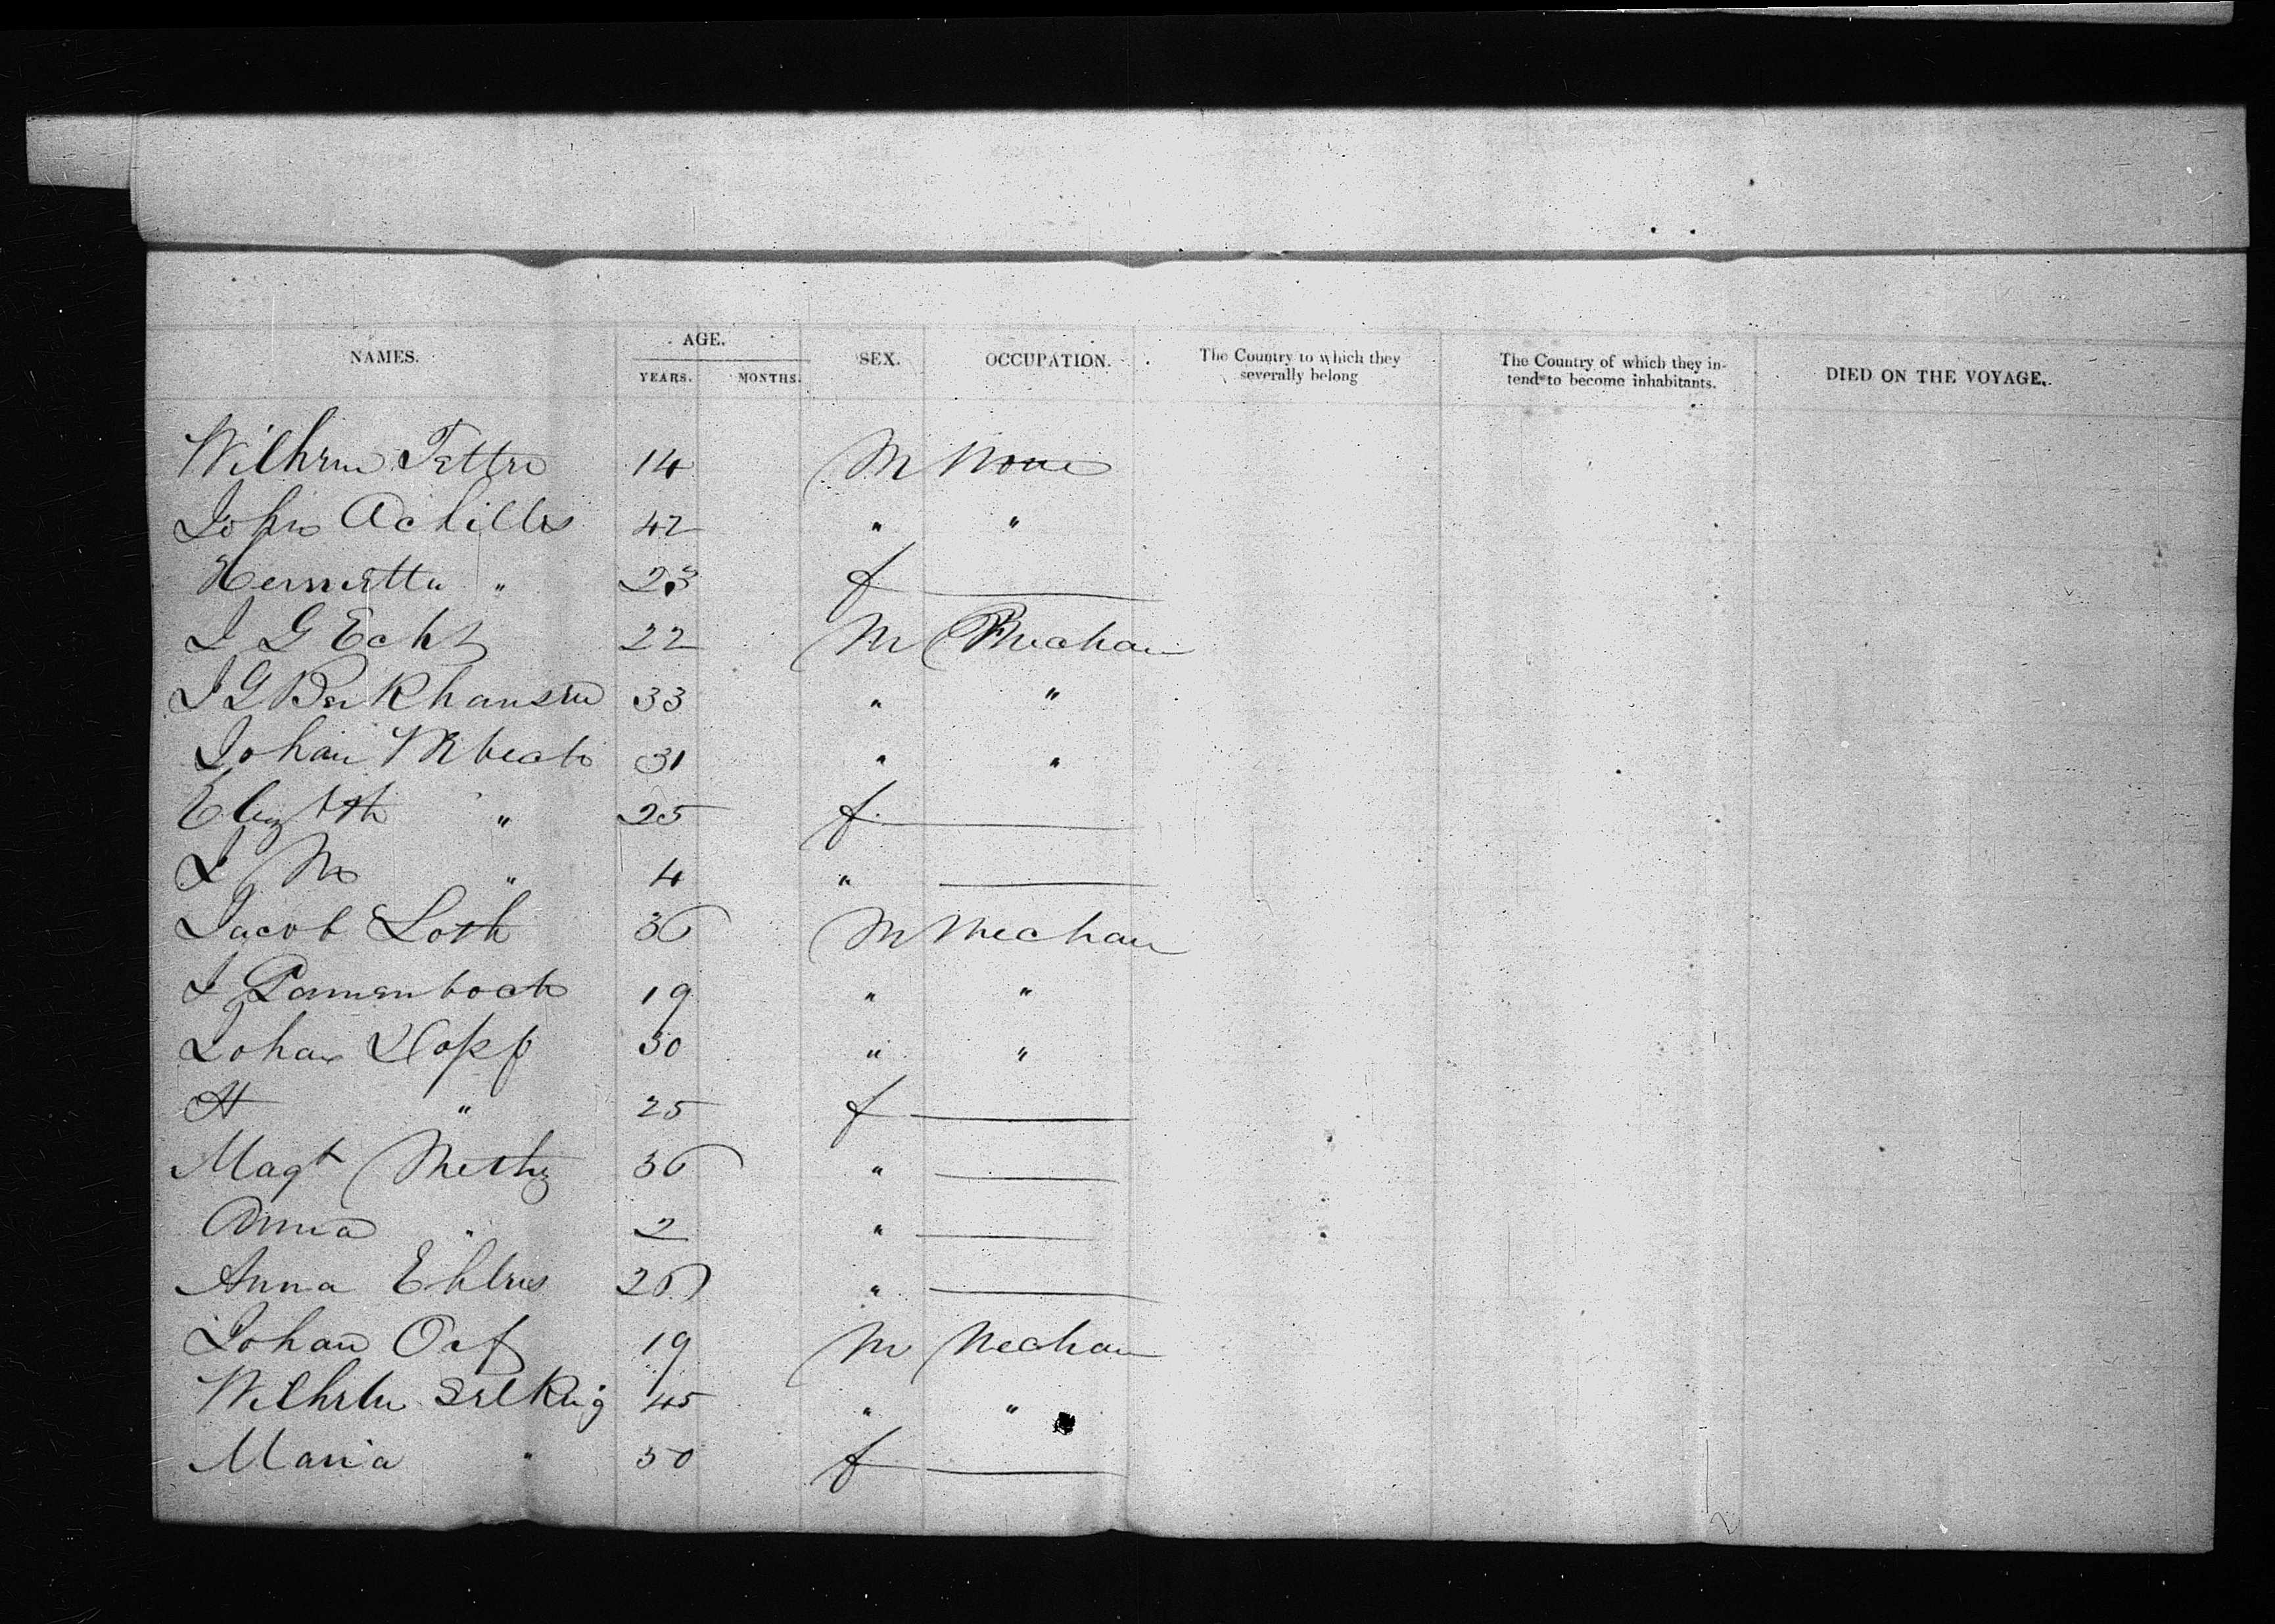 NAMES. AGE. YEARS. MONTHS. SEX. OCCUPATION. The Country to which they severally belong The Country of which they intend to become inhabitants. DIED ON THE VOYAGE.
14 M None
John Achilles 42 " "
Henrietta " 23 f
J G Echt 22 M Mechan
J G 33 " "
Johan 31 " "
" 25 f
" 4 "
Jacob Loth 36 M Mechan
J 19 " "
Johan Hopf 30 " "
H " 25 f
Magt 36 "
Anna " 2 "
Anna Ehlers 26 "
Johan Orf 19 M Mechan
Wilhelm Selking 45 " "
Maria " 50 f